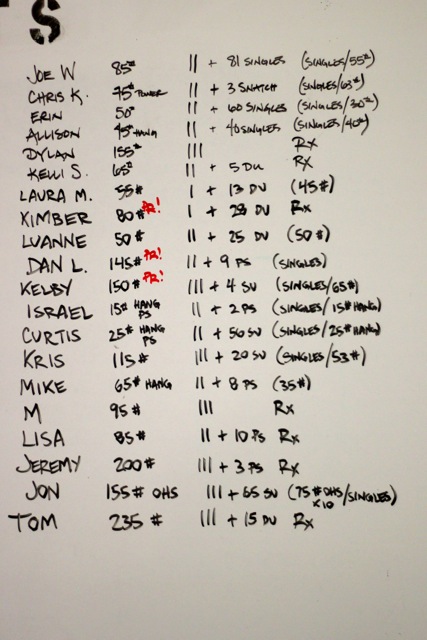 S
JOE W 85# II + 81 SINGLES (SINGLES/55#)
CHRIS K. 75# POWER II + 3 SNATCH (SINGLES/63#)
ERIN 50# II + 60 SINGLES (SINGLES/30#)
ALLISON 45# HANG II + 40 SINGLES (SINGLES/40#)
DYLAN 155# III RX
KELLI S. 65# II + 5 DU RX
LAURA M. 55# I + 13 DU (45#)
KIMBER 80# PR! I + 28 DU RX
LUANNE 50# II + 25 DU (50#)
DAN L. 145# PR! II + 9 PS (SINGLES)
KELBY 150# PR! III + 4 SU (SINGLES/65#)
ISRAEL 15# HANG PS II + 2 PS (SINGLES/15# HANG)
CURTIS 25# HANG PS II + 50 SU (SINGLES/25# HANG)
KRIS 115# III + 20 SU (SINGLES/53#)
MIKE 65# HANG II + 8 PS (35#)
M 95# III RX
LISA 85# II + 10 PS RX
JEREMY 200# III + 3 PS RX
JON 155# OHS III + 65 SU (75# OHS/SINGLES) x10
TOM 235# III + 15 DU RX